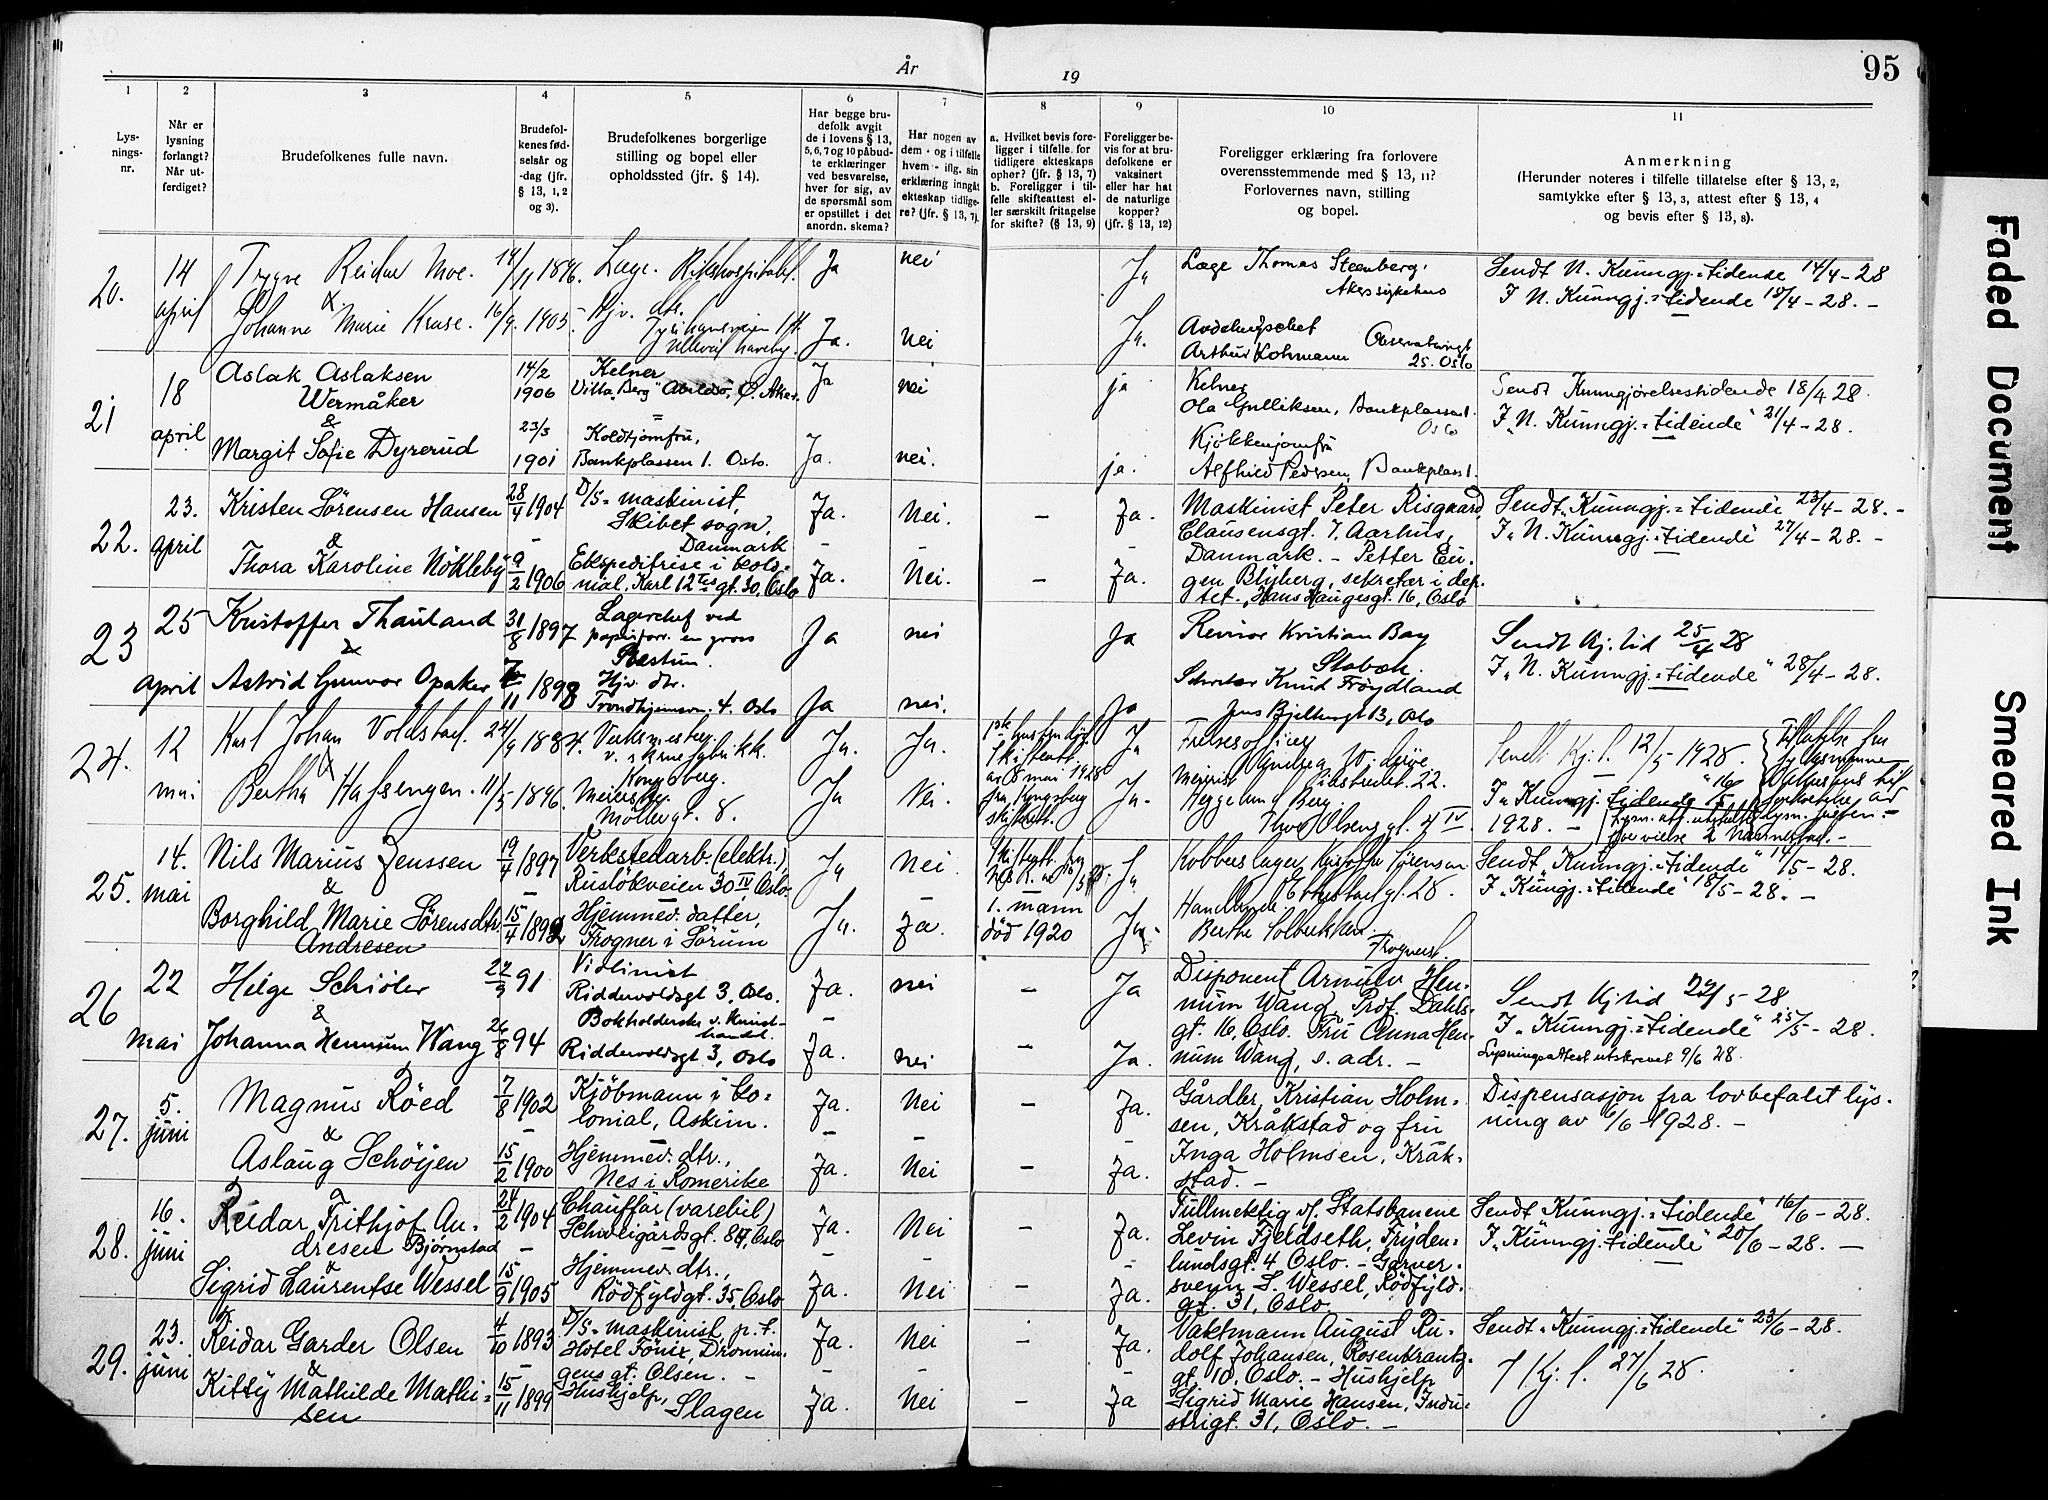 År 19
95
1
2
3
4
5
6
7
8
9
10
11
Lys-
nings-
nr.
Når er
lysning
forlangt?
Når ut-
ferdiget?
Brudefolkenes fulle navn.
Brudefol-
kenes fød-
selsår og
-dag (jfr.
§ 13, 1, 2
og 3).
Brudefolkenes borgerlige
stilling og bopel eller
opholdssted (jfr. § 14).
Har begge bru-
defolk avgit
de i lovens § 13,
5, 6, 7 og 10 påbud-
te erklæringer
ved besvarelse,
hver for sig, av
de spørsmål som
er opstillet i det
anordn. skema?
Har nogen av
dem - og i tilfelle
hvem - iflg. sin
erklæring inngåt
ekteskap tidlige-
re? (jfr. § 13, 7).
a. Hvilket bevis fore-
ligger i tilfelle for
tidligere ekteskaps
ophør? (jfr. § 13, 7)
b. Foreligger i til-
felle skifteattest el-
ler særskilt fritagelse
for skifte? (§ 13, 9)
Foreligger be-
vis for at bru-
defolkene er
vaksinert
eller har hat
de naturlige
kopper?
(jfr. § 13, 12)
Foreligger erklæring fra forlovere
overensstemmende med § 13, 11?
Forlovernes navn, stilling
og bopel.
Anmerkning
(Herunder noteres i tilfelle tillatelse efter § 13, 2,
samtykke efter § 13, 3, attest efter § 13, 4
og bevis efter § 13, 8).
20.
14
april
Trygve Reidar Moe.
&
Johanne Marie Kruse.
14/11 1896.
16/9. 1905.
Læge. Rikshospitalet.
Hjv. dtr.
Ullevål haveby.
Ja
Ja.
nei
nei
Ja
Ja.
Læge Thomas Steenberg.
Akers sykehus
Avdelingschef
Arthur Kohmann Observatoriegt
25. Oslo
Sendt N. Kunngj.-tidende 14/4-28
I N. Kunngj.-tidende 18/4-28. -
21
18
april
Aslak Aslaksen
Wermåker
&
Margit Sofie Dyrerud
14/2
1906
23/3
1901
Kelner
Villa "Berg" Abildsø, Ø. Aker.
Koldtjomfru,
Bankplassen 1. Oslo.
Ja
Ja.
nei
nei.
ja
ja.
Kelner
Ola Gulliksen, Bankplassen 1.
Oslo
Kjøkkenjomfru
Alfhild Pedersen, Bankplass 1.
Sendt Kunngjørelsestidende 18/4 28.
I "N. Kunngj.-tidende" 21/4-28.
22.
23.
april
Kristen Sørensen Hansen
&
Thora Karoline Nökleby
28/4 1904
-
9/2 1906
D/S-maskinist,
Skibet sogn,
Danmark
Ekspeditrise i kolo-
nial, Karl 12tes gt. 30, Oslo
Ja.
-
Ja.
Nei.
-
Nei.
-
-
Ja.
-
Ja.
Maskinist Peter Risgaard,
Clausensgt. 7, Aarhus,
Danmark. - Petter Eu-
gen Blyberg, sekretær i dep.
tet., Hans Haugesgt. 16, Oslo
Sendt "Kunngj.-tidende" 23/4-28. -
I "N. Kunngj.-tidende" 27/4-28. -
23
25
april
Kristoffer Thauland
&
Astrid Gunvor Opaker
31/8 1897
11 1898
Lagerchef ved
papirforr. en gros
Stastum.
Hjv. dtr.
Trondhjemsvn. 4. Oslo
Ja
Ja
nei
nei.
Ja
Ja
Revisor Kristian Bay
Stabæk.
Sekretær Knud Fröydland
Jens Bjelkesgt 13, Oslo
Sendt Kj. tid 25/4 28
I "N. Kunngj.-tidende" 28/4-28.
24.
12
mai
Karl Johan Voldstad.
&
Bertha Hafsengen.
24/9 1884.
11/5 1896.
Verksmester
Kongsberg.
Møllergt. 8.
Ja.
Ja
Ja.
Nei.
Skifteatt.
av 8 mai 1928
fra Kongsberg
Ja
Ja.
Heggelund Berg
Thv. Olsens gt. 4 IV.
Sendt Kj. t. 12/5-1928.
I "Kunngj.-tidende" 16/5
1928. -
25.
14.
mai
Nils Marius Jenssen
&
Borghild Marie Sørensdtr.
Andresen
19/4 1897
-
15/4 1892
Verkstedarb. (elektr.)
Rusløkveien 30 IV, Oslo.
-
Hjemmev. datter,
Frogner i Sørum
Ja
Ja.
Nei.
-
Ja.
1. mann
död 1920
Ja
Ja.
Berthe Solbrekken.
Sendt "Kunngj.-tidende" 14/5-28.
I "Kungj.-tidende" 18/5-28. -
26
22
mai
Helge Schiöler
&
Johanna Hennum Wang
91
26/8 94
Violinist
Riddervoldsgt 3, Oslo.
Bokholderske v. Kunst-
handel.
Riddervoldsgt 3, Oslo
Ja.
-
Ja.
nei
nei
-
-
Ja
Ja.
Disponent Arnulv Hen-
num Wang, Prof. Dahls-
gt. 16, Oslo. Fru Anna Hen-
num Wang, s. adr. -
Sendt Kj tid 22/5-28.
I "Kunngj.-tidende" 25/5-28.
Lysningsattest utskrevet 9/6 28.
27.
5.
juni
Magnus Röed
&
Aslaug Schöyen
7/8 1902
-
15/2 1900
Kjöbmann i Co-
lonial, Askim.
Hjemmev. dtr.,
Nes i Romerike
Ja.
-
Ja.
Nei
-
Nei
-
-
Ja.
-
Ja.
Gårdbr. Kristian Holm-
sen, Kråkstad og fru
Inga Holmsen, Kråk-
stad. -
Dispensasjon fra lovbefalet lys-
ning av 6/6-1928. -
28.
16.
juni
Reidar Frithjof An-
dresen Björnstad
&
Sigrid Laurentse Wessel
24/2 1904
-
15/9 1905
Chauffør (varebil)
Schweigårdsgt. 84, Oslo
Hjemmev. dtr.,
Rödfyldgt. 35, Oslo
Ja.
-
Ja.
Nei
-
Nei
-
-
Ja.
-
Ja.
Fullmektig v/ Statsbanene
Levin Fjeldseth, Fryden-
lundsgt. 4 Oslo. - Garver-
svenn S. Wessel, Rödfyld-
gt. 31, Oslo.
Sendt "Kunngj.-tidende" 16/6-28.
I "Kunngj.-tidende" 20/6-28. -
29.
23.
juni
Reidar Garder Olsen
&
Kitty Mathilde Mathi-
sen
4/10 1893
-
15/11 1899
D/S-maskinist, p.t.
Hotel Fönix, Dronnin-
gens gt. Olsen. -
Hushjelp,
Slagen
Ja.
-
Ja.
Nei
-
Nei
-
-
Ja.
-
Ja
Vaktmann August Ru-
dolf Johansen, Rosenkrantz-
gt. 10, Oslo. - Hushjelp
Sigrid Marie Hansen, Indu-
strigt. 31, Oslo. -
Sendt "Kunngj.-tidende" 23/6-28.
I Kj. t. 27/6 28.
Faded Document
Smeared Ink